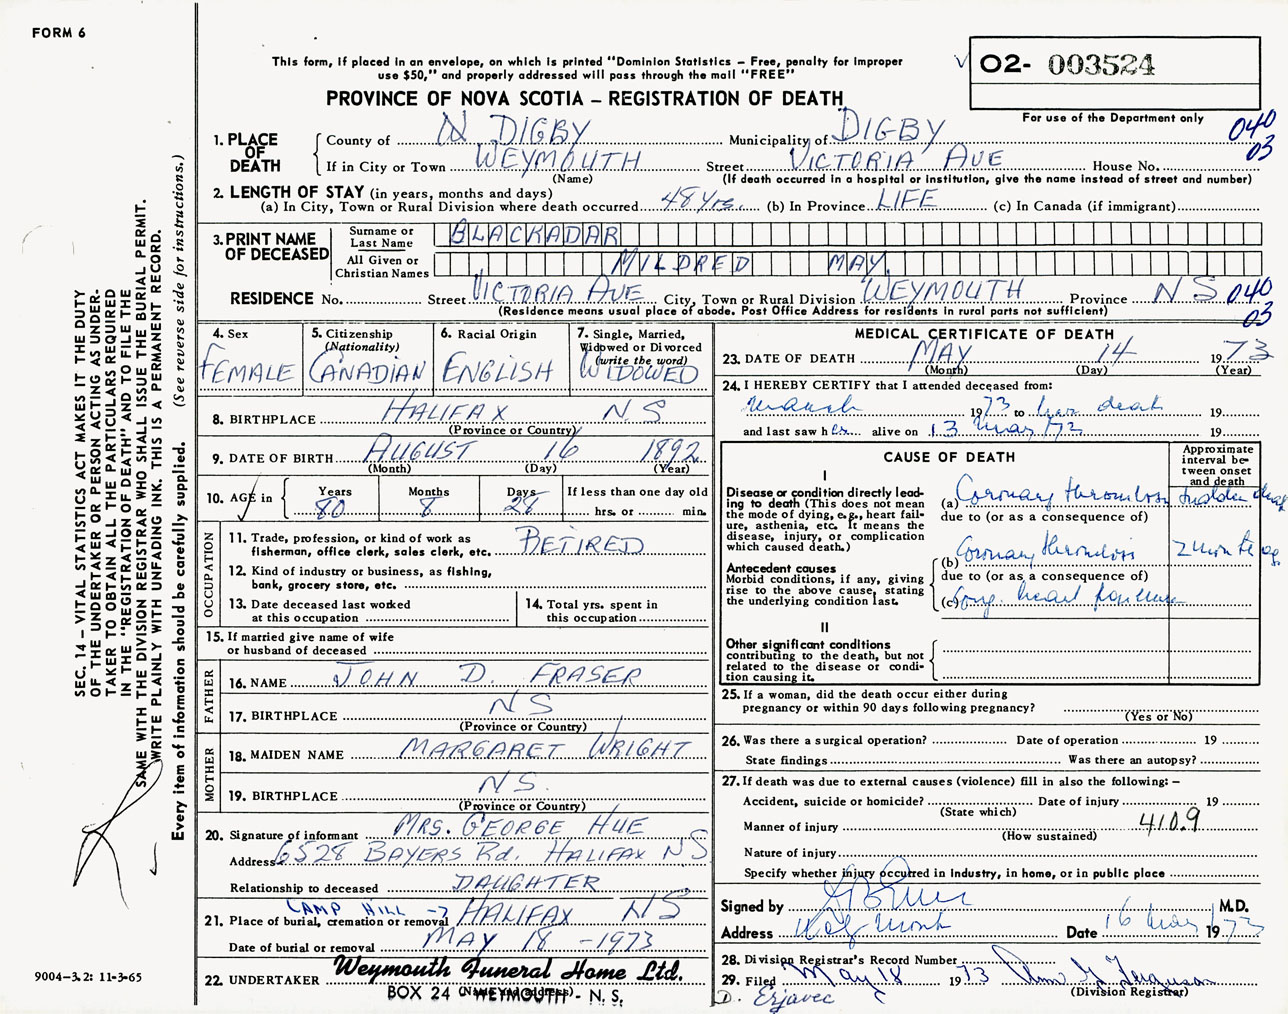 FORM 6
This form, if placed in an envelope, on which is printed "Dominion Statistics – Free, penalty for improper
use $50," and properly addressed will pass through the mail "FREE"
PROVINCE OF NOVA SCOTIA – REGISTRATION OF DEATH
02- 003524
For use of the Department only
040
03
1. PLACE OF DEATH
County of N DIGBY Municipality of DIGBY
If in City or Town WEYMOUTH Street VICTORIA AVE House No.
(Name) (If death occurred in a hospital or institution, give the name instead of street and number)
2. LENGTH OF STAY (in years, months and days)
(a) In City, Town or Rural Division where death occurred 48 yrs. (b) In Province LIFE (c) In Canada (if immigrant)
3. PRINT NAME OF DECEASED
Surname or Last Name BLACKADAR
All Given or Christian Names MILDRED MAY
RESIDENCE No. Street VICTORIA AVE City, Town or Rural Division WEYMOUTH Province N S 040
03
(Residence means usual place of abode. Post Office Address for residents in rural parts not sufficient)
4. Sex
FEMALE
5. Citizenship
(Nationality)
CANADIAN
6. Racial Origin
ENGLISH
7. Single, Married,
Widowed or Divorced
(write the word)
WIDOWED
8. BIRTHPLACE HALIFAX N S
(Province or Country)
9. DATE OF BIRTH AUGUST 16 1892
(Month) (Day) (Year)
10. AGE in
Years 80 Months 8 Days 28
If less than one day old
hrs. or min.
OCCUPATION
11. Trade, profession, or kind of work as
fisherman, office clerk, sales clerk, etc. RETIRED
12. Kind of industry or business, as fishing,
bank, grocery store, etc.
13. Date deceased last worked
at this occupation
14. Total yrs. spent in
this occupation
15. If married give name of wife
or husband of deceased
FATHER
16. NAME JOHN D. FRASER
17. BIRTHPLACE N S
(Province or Country)
MOTHER
18. MAIDEN NAME MARGARET WRIGHT
19. BIRTHPLACE N S.
(Province or Country)
20. Signature of informant MRS. GEORGE HUE
Address 6528 BAYERS Rd. HALIFAX N S
Relationship to deceased DAUGHTER
21. Place of burial, cremation or removal CAMP HILL -> HALIFAX N S
Date of burial or removal MAY 18 - 1973
22. UNDERTAKER Weymouth Funeral Home Ltd.
(Name and address)
BOX 24 WEYMOUTH - N. S.
MEDICAL CERTIFICATE OF DEATH
23. DATE OF DEATH MAY 14 1973
(Month) (Day) (Year)
24. I HEREBY CERTIFY that I attended deceased from:
March 1973 to her death 19
and last saw her alive on 13 May/73 19
CAUSE OF DEATH
Approximate
interval be-
tween onset
and death
I
Disease or condition directly lead-
ing to death (This does not
mean the mode of dying, e.g., heart fail-
ure, asthenia, etc. It means the
disease, injury, or complication
which caused death.)
(a) Coronary thrombosis sudden death
due to (or as a consequence of)
Antecedent causes
Morbid conditions, if any, giving
rise to the above cause, stating
the underlying condition last.
(b) Coronary thrombosis 2 months ago.
due to (or as a consequence of)
(c) Cong. heart failure
II
Other significant conditions
contributing to the death, but not
related to the disease or condi-
tion causing it.
25. If a woman, did the death occur either during
pregnancy or within 90 days following pregnancy?
(Yes or No)
26. Was there a surgical operation? Date of operation 19
State findings Was there an autopsy?
27. If death was due to external causes (violence) fill in also the following: –
Accident, suicide or homicide? Date of injury 19
(State which)
Manner of injury 410.9
(How sustained)
Nature of injury
Specify whether injury occurred in industry, in home, or in public place
Signed by M.D.
Address Weymouth Date 16 May 1973
28. Division Registrar's Record Number
29. Filed May 18 1973 Ferguson
(Division Registrar)
D. Erjavec
SEC. 14 – VITAL STATISTICS ACT MAKES IT THE DUTY
OF THE UNDERTAKER OR PERSON ACTING AS UNDER-
TAKER TO OBTAIN ALL THE PARTICULARS REQUIRED
IN THE "REGISTRATION OF DEATH" AND TO FILE THE
SAME WITH THE DIVISION REGISTRAR WHO SHALL ISSUE THE BURIAL PERMIT.
WRITE PLAINLY WITH UNFADING INK. THIS IS A PERMANENT RECORD.
Every item of information should be carefully supplied. (See reverse side for instructions.)
9004-3.2: 11-3-65